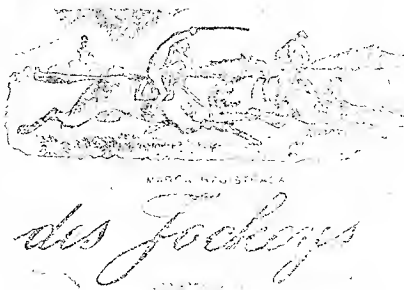 MARCA REGISTRADA
des Jockeys